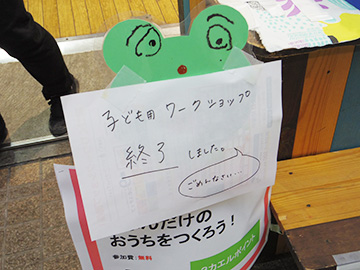 子ども用 ワークショップ
終了 しました。
ごめんなさい…
だけの
おうちをつくろう！
参加費｜無料
カエルポイント